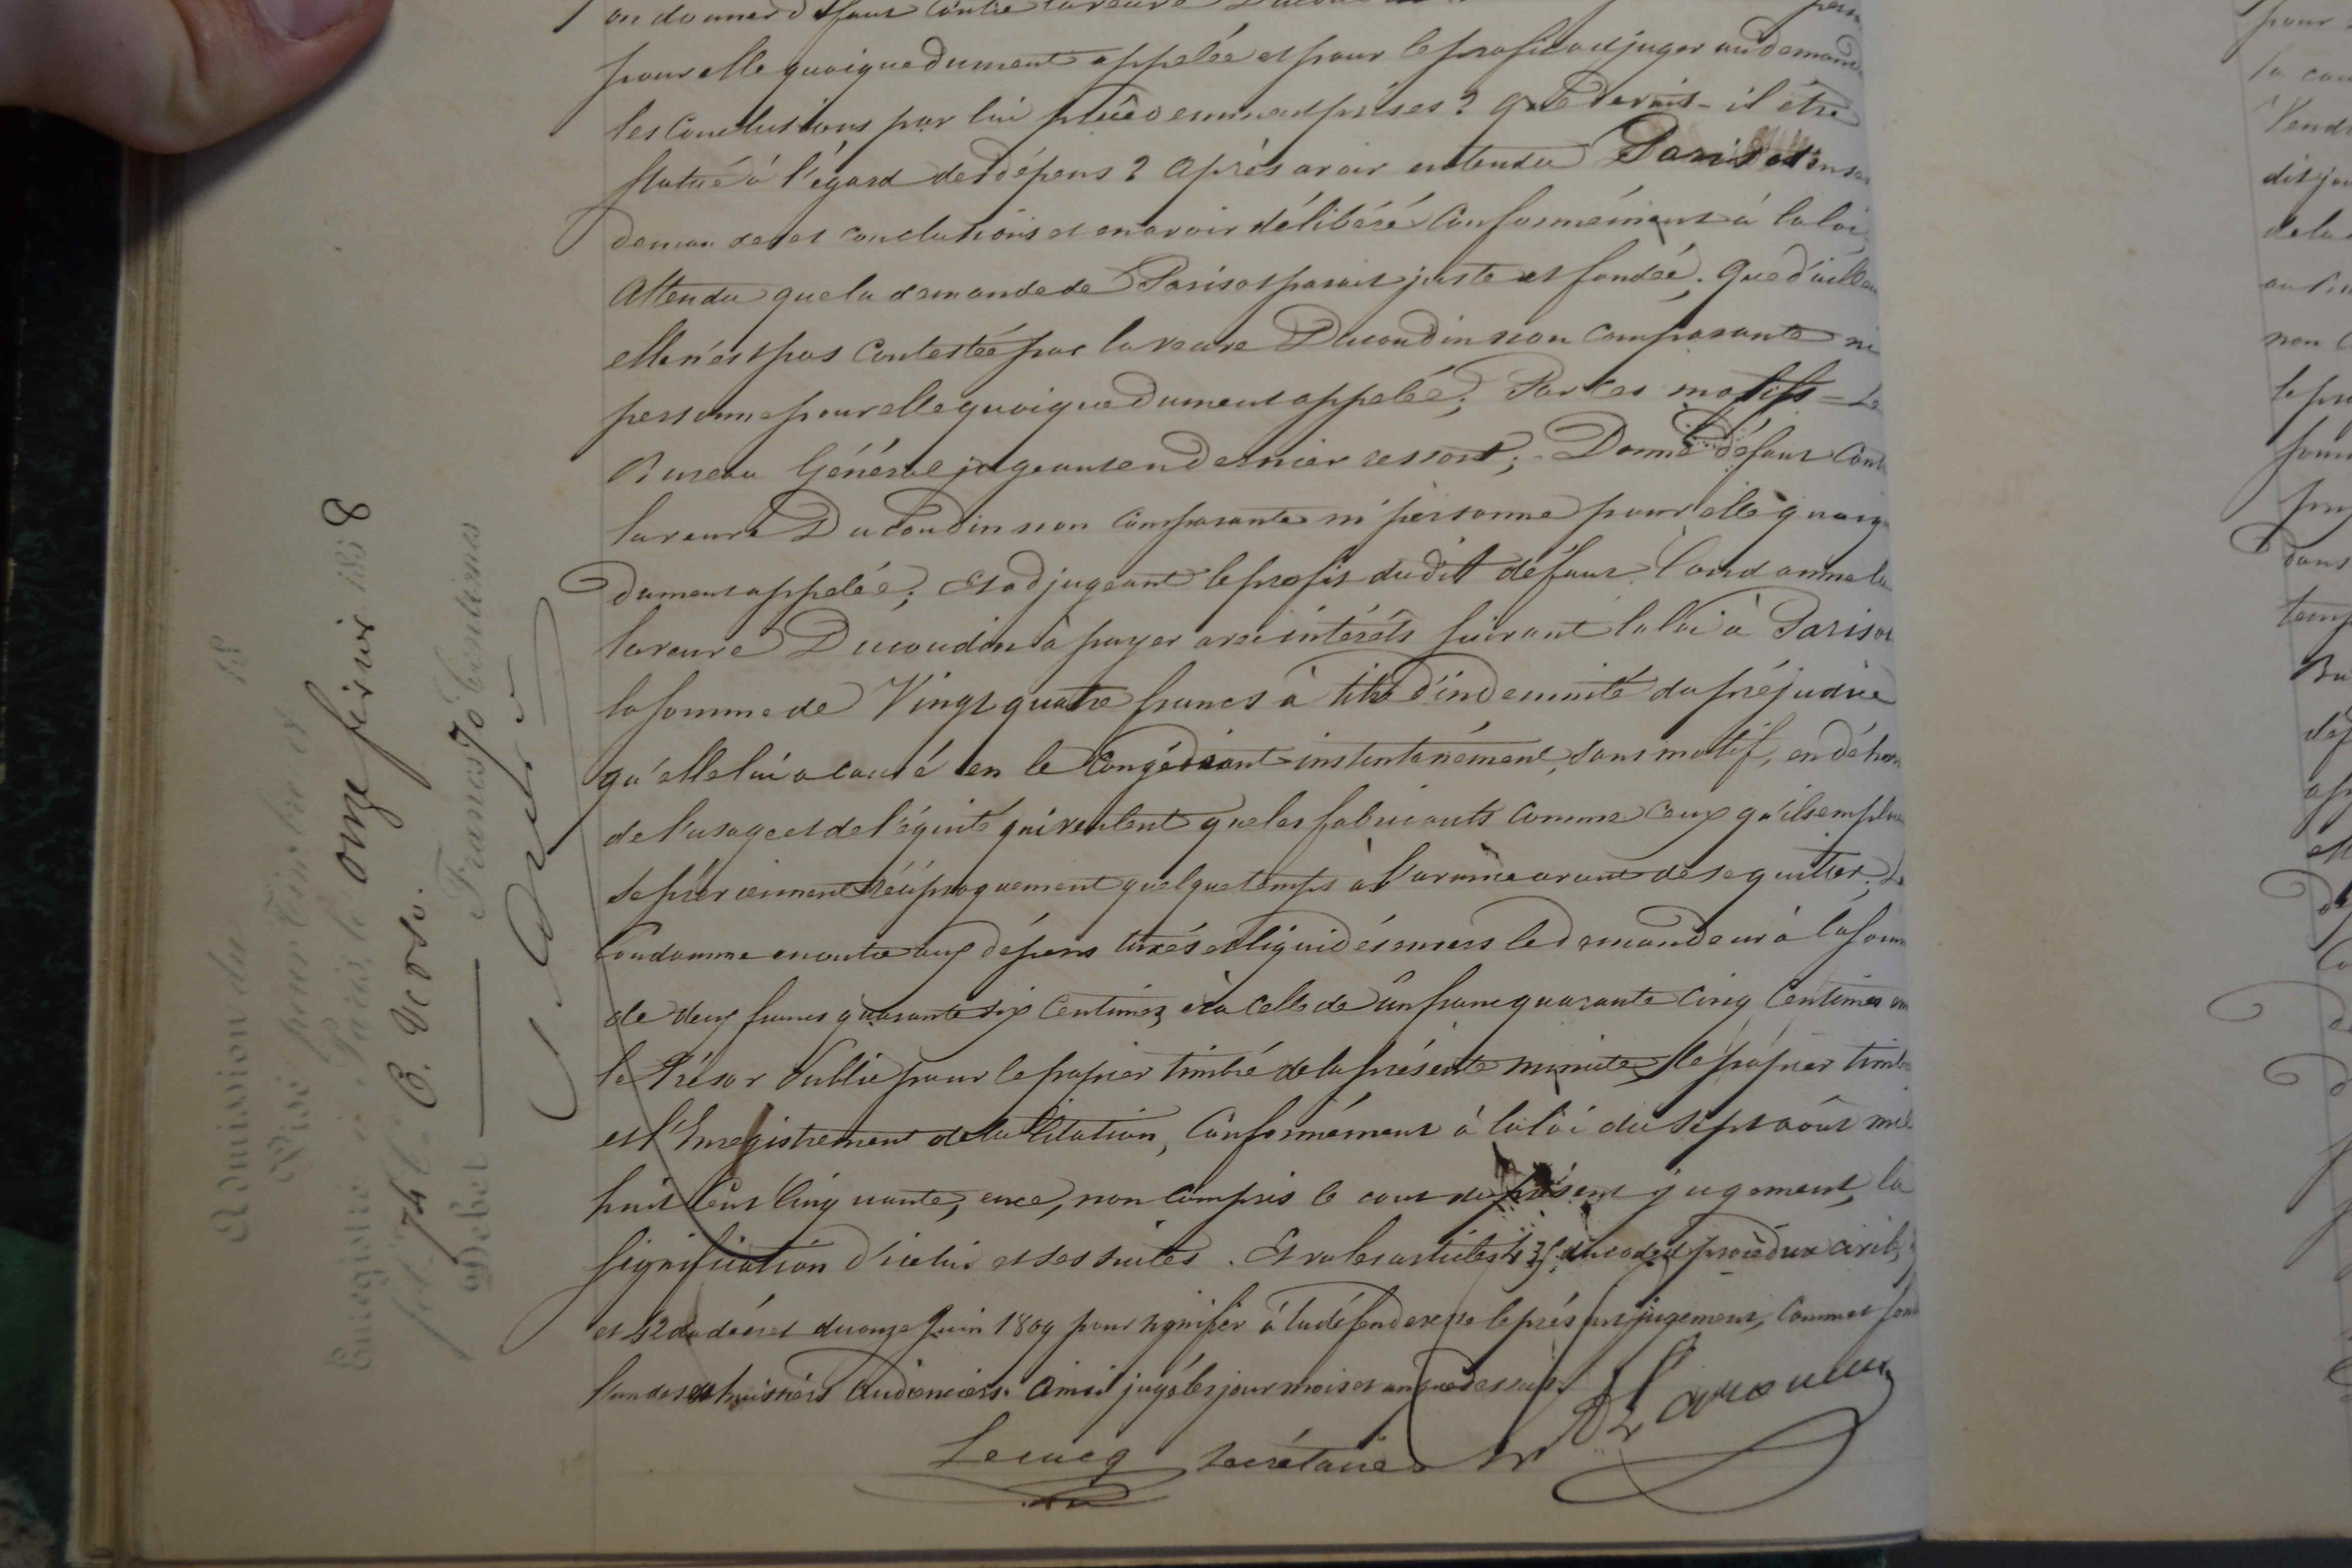 on donner défaut contre la veuve
pour elle quoique dument appelée et pour le profit adjuger au demand
les conclusions par lui précédemment prises ? Que devait-il être
statué à l'égard des dépens ? Après avoir entendu Parisot en ses
demandes et conclusions et en avoir délibéré conformément à la loi ;
Attendu que la demande de Parisot parait juste et fondée ; Que d'aille
elle n'est pas contestée par la veuve Ducoudin non comparante ni
personne pour elle quoique dument appelée ; Par ces motifs = Le
Bureau Général jugeant en dernier ressort ; Donne défaut cont
la veuve Ducoudin non comparante ni personne pour elle quoiq
dument appelée ; Et adjugeant le profit dudit défaut, Condamne la
la veuve Ducoudin à payer avec intérêts suivant la loi à Parisot
la somme de Vingt quatre francs à titre d'indemnité du préjudice
qu'elle lui a causé en le congédiant instentanément, sans motif, en déhor
de l'usage et de l'équité qui veulent que les fabricants comme ceux qu'ils emploi
se préviennent réciproquement quelque temps à l'avance avant de se quitter ; La
Condamne en outre aux dépens taxés et liquidés envers le demandeur à la som
de deux francs quarante six centimes, et à celle de un franc quarante cinq centimes en
le Trésor Public pour le papier timbré de la présente minute, le papier timb
et l'Enregistrement de la Citation, conformément à la loi du sept août mil
huit cent cinquante, ence, non compris le cout du présent jugement, la
signification d'icelui et ses suites. Et vu les articles 435 du code de procédure civile,
et 42 du décret du onze Juin 1809 pour signifier à la défenderesse le présent jugement, Commet
l'un de ses huissiers audienciers. Ainsi jugé les jour mois et an que dessus.
Lecucq secrétaire
Admission du 18
Visé pour timbre et
Enregistré à Paris, le onze février 1858
fol. 74 C. Verso.
Débet — Francs 70 Centimes